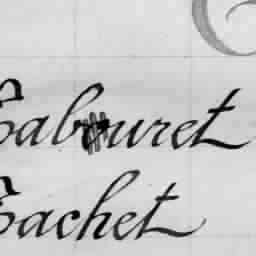 Cabouret
Cachet